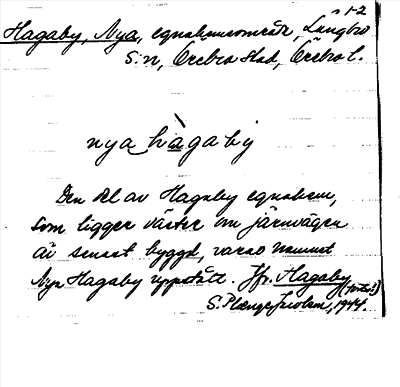 s 1-2
Hagaby, Nya, egnahemsområde, Längbro
S:n, Örebro stad, Örebro l.
nya hagaby
Den del av Hagaby egnahem,
som ligger väster om järnvägen
är senast byggd, varav namnet
Nya Hagaby uppstått. Jfr. Hagaby
S. 1944.